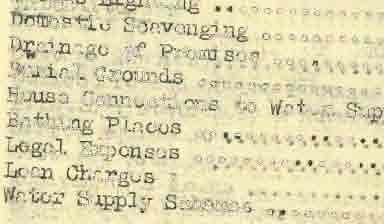 Lighting ..
Domestic Scavenging ..........
Drainage of Premises ..........
Burial Grounds ..........
House Connections to Water Sup
Bathing Places ..........
Legal Expenses ..........
Loan Charges ..........
Water Supply Schemes ..........